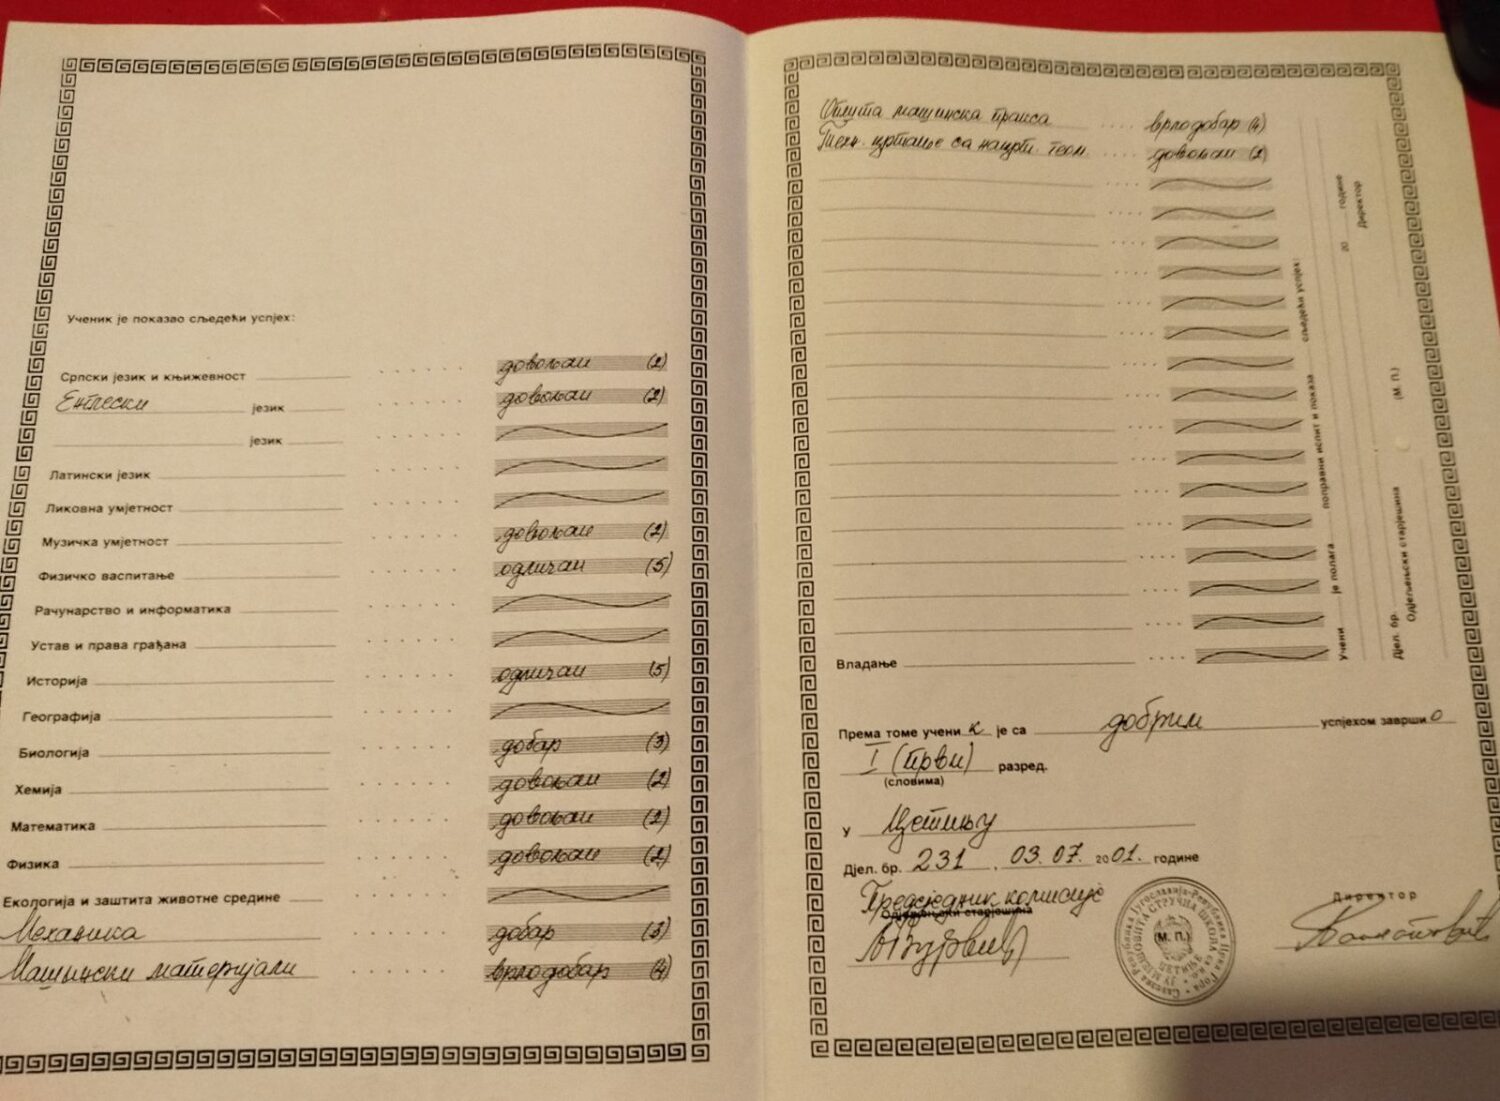 Ученик је показао сљедећи успјех:
Српски језик и књижевност довољан (2)
Енглески језик довољан (2)
језик
Латински језик
Ликовна умјетност
Музичка умјетност довољан (2)
Физичко васпитање одличан (5)
Рачунарство и информатика
Устав и права грађана
Историја одличан (5)
Географија
Биологија добар (3)
Хемија довољан (2)
Математика довољан (2)
Физика довољан (2)
Екологија и заштита животне средине
Механика добар (3)
Машински материјали врло добар (4)
Општа машинска пракса врло добар (4)
Техн. цртање са нацрт. геом. довољан (2)
Владање
Учени је полага поправни испит и показа сљедећи успјех:
20 године
Директор
Дјел. бр.
Одјељењски старјешина (М. П.)
Према томе учени к је са добрим успјехом заврши о
I (први) разред.
(словима)
У Цетињу
Дјел. бр. 231, 03.07. 2001. године
Предсједник комисије
Одјељењски старјешина
Директор
(М. П.)
Савезна Република Југославија-Република Црна Гора
СТРУЧНА ШКОЛА
ЦЕТИЊЕ